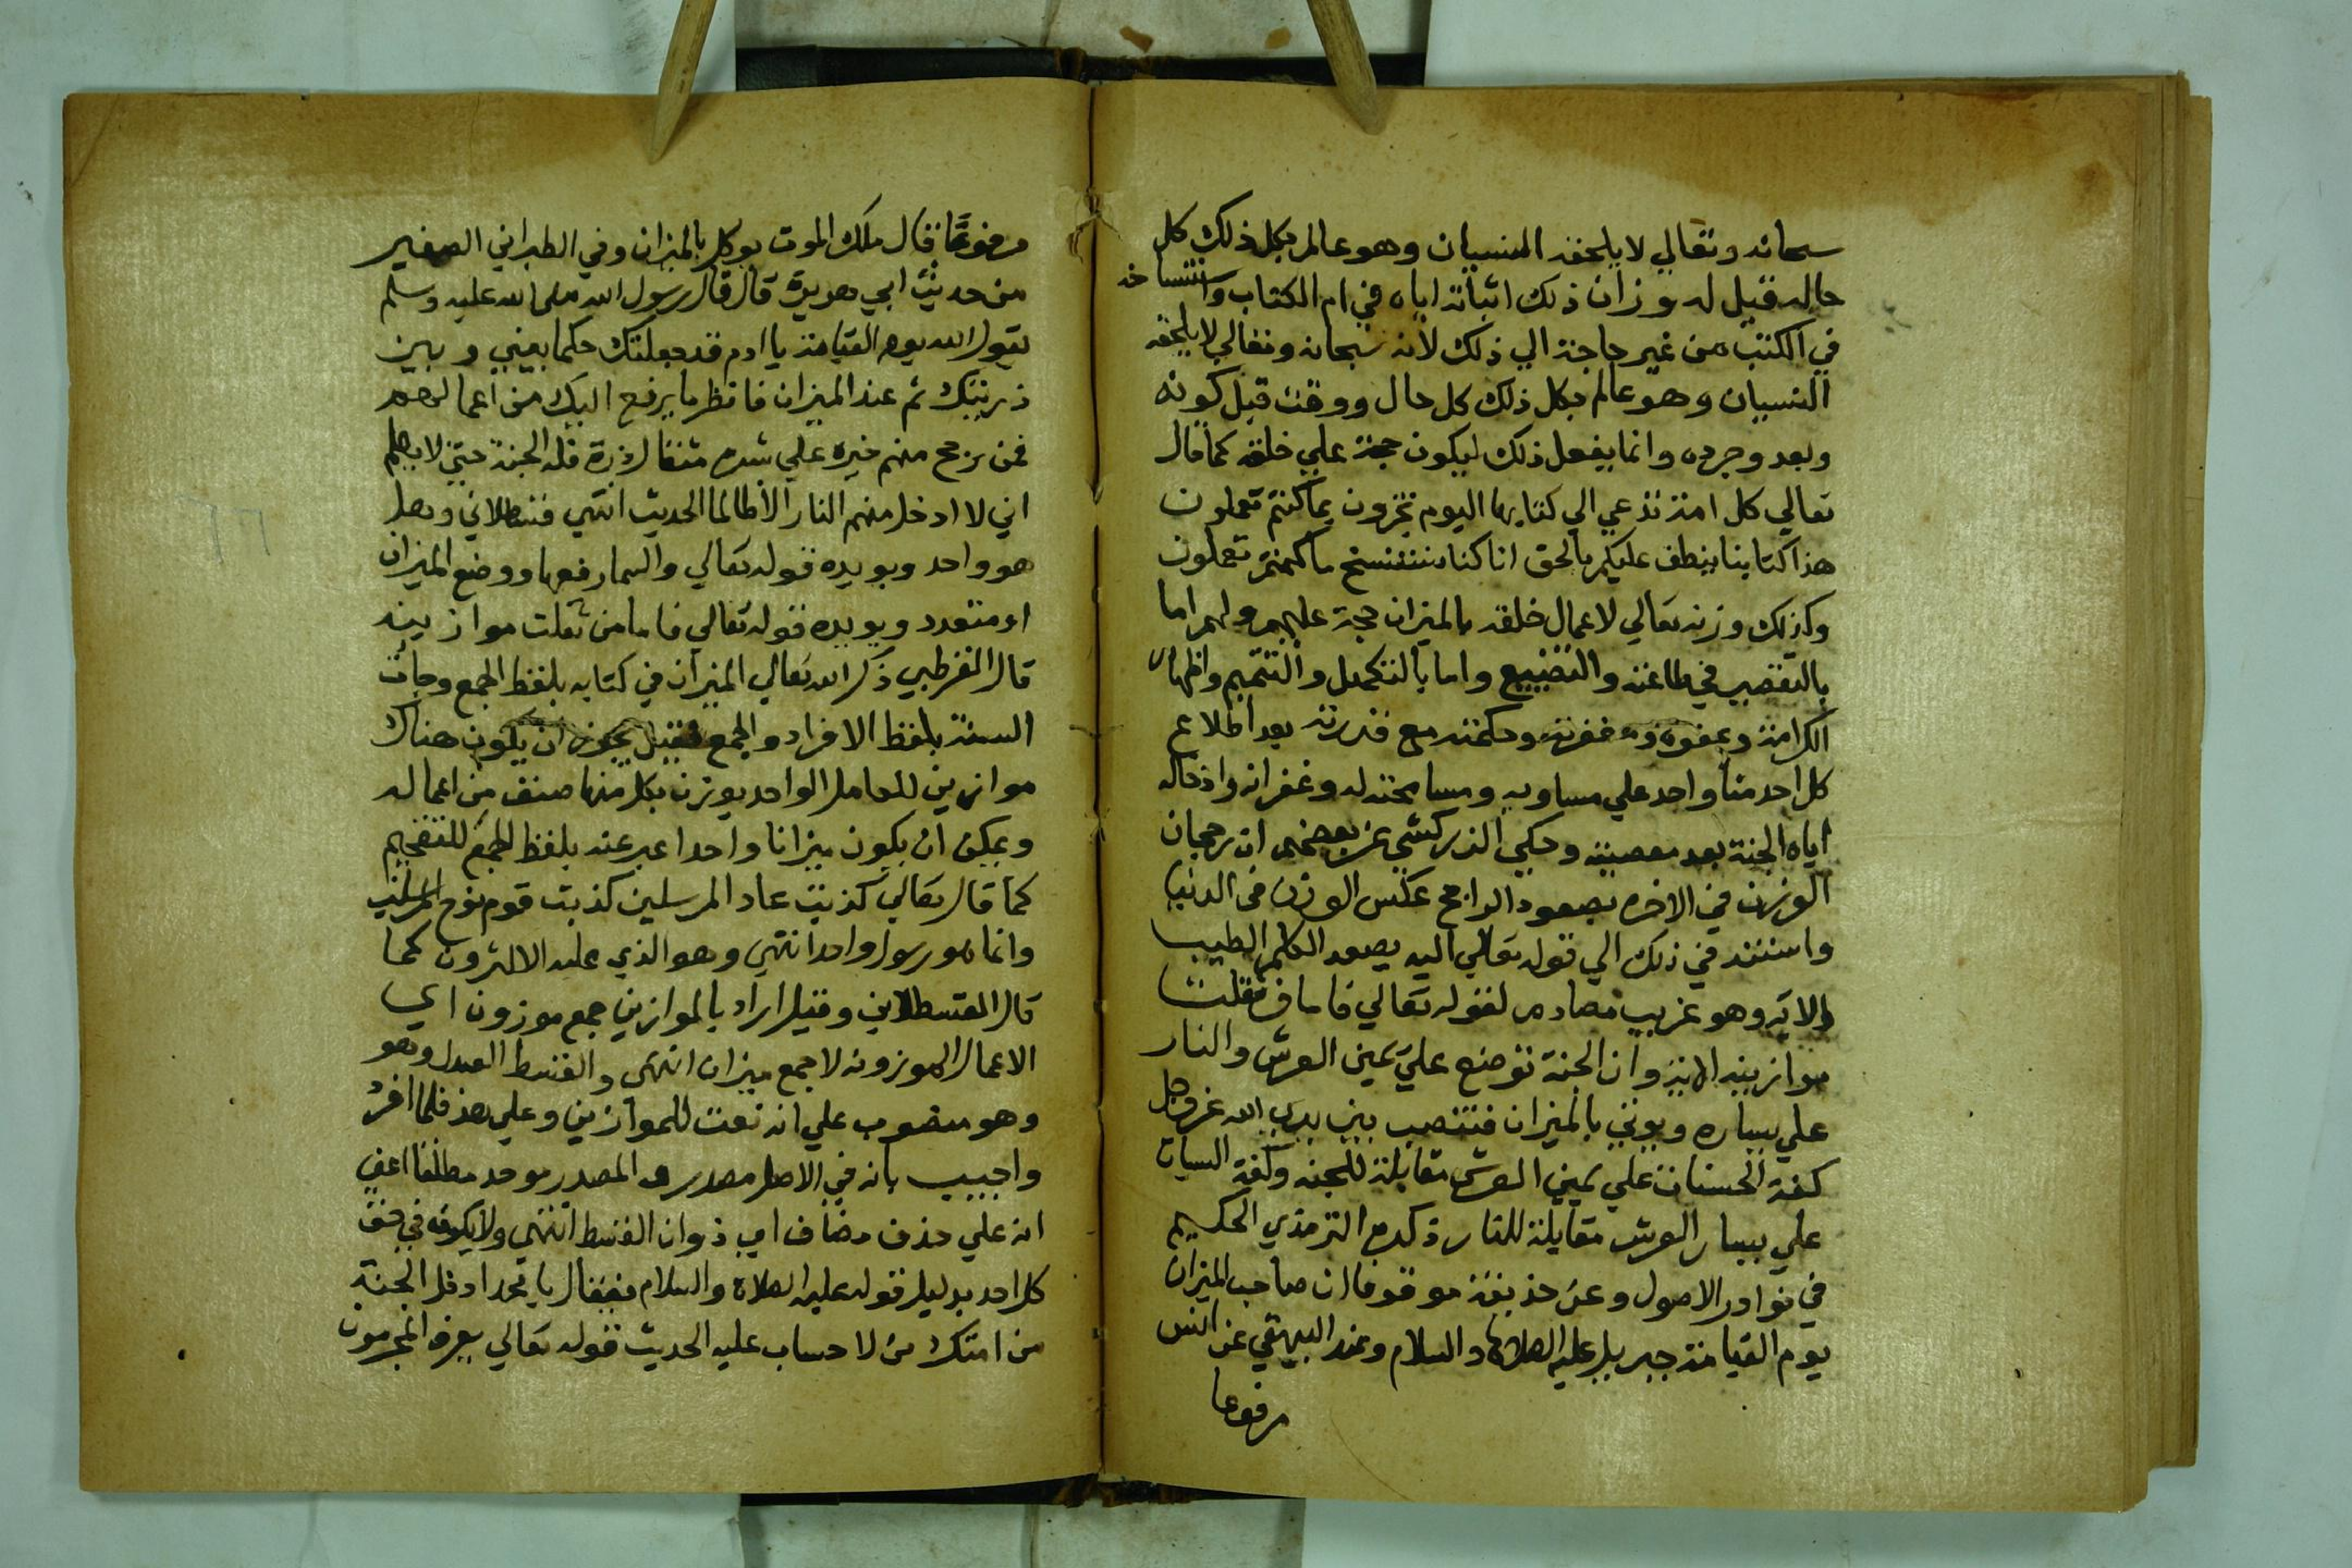 سبحانه وتعالي لا يلحقه النسيان وهو عالم بكل ذلك كل
حاله قيل له وزان ذلك اثباته اياه في ام الكتاب واستنساخه
في الكتب من غير حاجة الي ذلك لانه سبحانه وتعالي لا يلحقه
النسيان وهو عالم بكل ذلك كل حال ووقت قبل كونه
وبعد وجوده وانما يفعل ذلك ليكون حجة علي خلقه كما قال
تعالي كل امة تدعي الي كتابها اليوم تجزون بما كنتم تعملون
هذا كتابنا ينطق عليكم بالحق انا كنا نستنسخ ما كنتم تعملون
وكذلك وزنه تعالي لاعمال خلقه بالميزان حجة عليهم ولهم اما
بالتقصير في طاعته والتضييع واما بالتكميل والتتميم واظهار
الكرامة وعفوه ومغفرته وحكمته مع قدرته بعد اطلاع
كل احد منا واحد علي مساويه ومسامحته له وغفرانه وادخاله
اياه الجنة بعد معصيته وحكي الزركشي عن بعضهم ان رجحان
الوزن في الاخره بصعود الراجح عكس الوزن في الدنيا
واستند في ذلك الي قوله تعالي اليه يصعد الكلم الطيب
الايه وهو غريب مصادم لقوله تعالي فاما من ثقلت
موازينه الاية وان الجنة توضع علي يمين العرش والنار
علي يساره ويوتي بالميزان فتنصب بين يدي الله عز وجل
كفة الحسنات علي يمين العرش مقابلة للجنه وكفة السيات
علي يسار العرش مقابلة للنار ذكره الترمذي الحكيم
في نوادر الاصول وعن حذيفة موقوفا ان صاحب الميزان
يوم القيامة جبريل عليه الصلاة والسلام وعند البيهقي عن انس
مرفوعا
مرفوعا قال ملك الموت يوكل بالميزان وفي الطبراني الصغير
من حديث ابي هريرة قال قال رسول الله صلي الله عليه وسلم
يقول الله يوم القيامة يا ادم قد جعلتك حكما بيني وبين
ذريتك ثم عند الميزان فانظر ما يرفع اليك من اعمالهم
فمن رجح منهم خيره علي شره مثقال ذرة فله الجنة حتي لا يعلم
اني لا ادخل منهم النار الا ظالما الحديث انتهي قسطلاني وهل
هو واحد ويويده قوله تعالي والسما رفعها ووضع الميزان
او متعدد ويويده قوله تعالي فاما من ثقلت موازينه
قال القرطبي ذكر الله تعالي الميزان في كتابه بلفظ الجمع وجات
السنة بلفظ الافراد والجمع فقيل يجوز ان يكون هناك
موازين للعامل الواحد يوزن بكل منها صنف من اعماله
ويمكن ان يكون ميزانا واحدا عبر عنه بلفظ الجمع للتفخيم
كما قال تعالي كذبت عاد المرسلين كذبت قوم نوح المرسلين
وانما هو رسول واحد انتهي وهو الذي عليه الاكثرون كما
قال القسطلاني وقيل اراد بالموازين جمع موزون اي
الاعمال الموزونه لا جمع ميزان انتهي والقسط العدل وهو
وهو منصوب علي انه نعت للموازين وعلي هذ فلما افرد
واجيب بانه في الاصل مصدر والمصدر موحد مطلقا اعني
انه علي حذف مضاف اي ذوات القسط انتهي ولا يكون في حق
كل احد بدليل قوله عليه الصلاة والسلام فيقال يا محمد ادخل الجنة
من امتك من لا حساب عليه الحديث قوله تعالي يعرف المجرمون